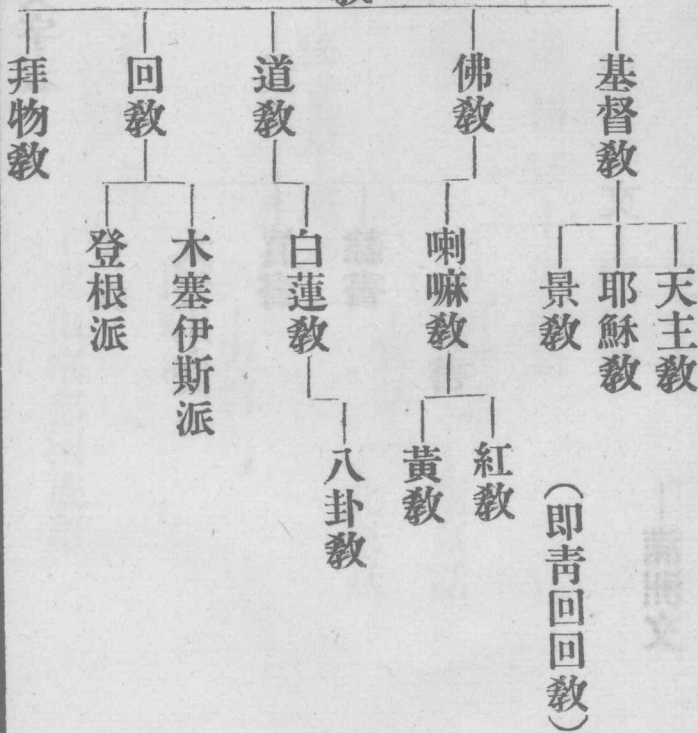 教
基督教
天主教
耶穌教
景教
（即青回回教）
佛教
喇嘛教
紅教
黃教
道教
白蓮教
八卦教
回教
木塞伊斯派
登根派
拜物教